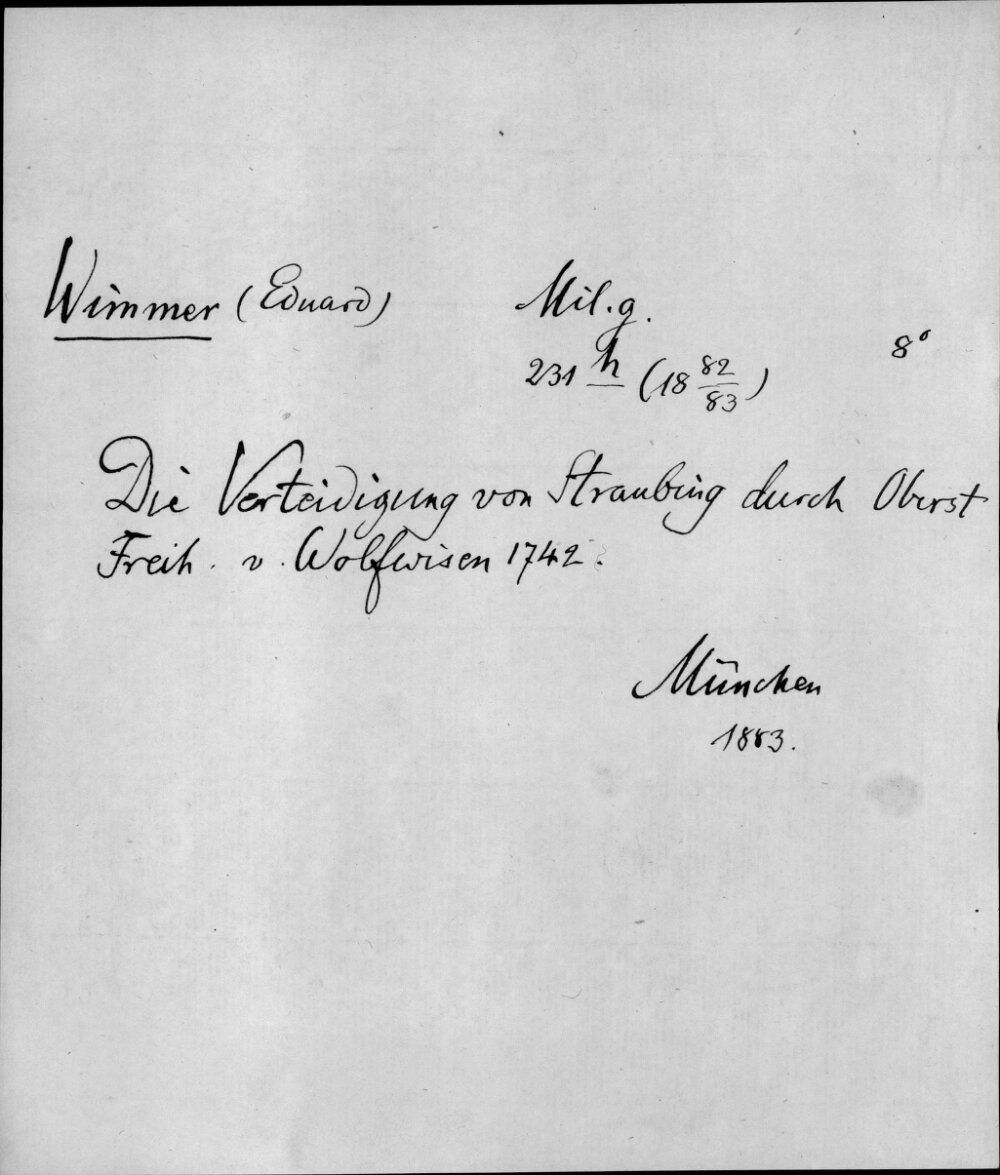 Wimmer (Eduard)
Mil. g.
231 h (18 82/83)
8°
Die Verteidigung von Straubing durch Oberst
Freih. v. Wolfwisen 1742.
München
1883.